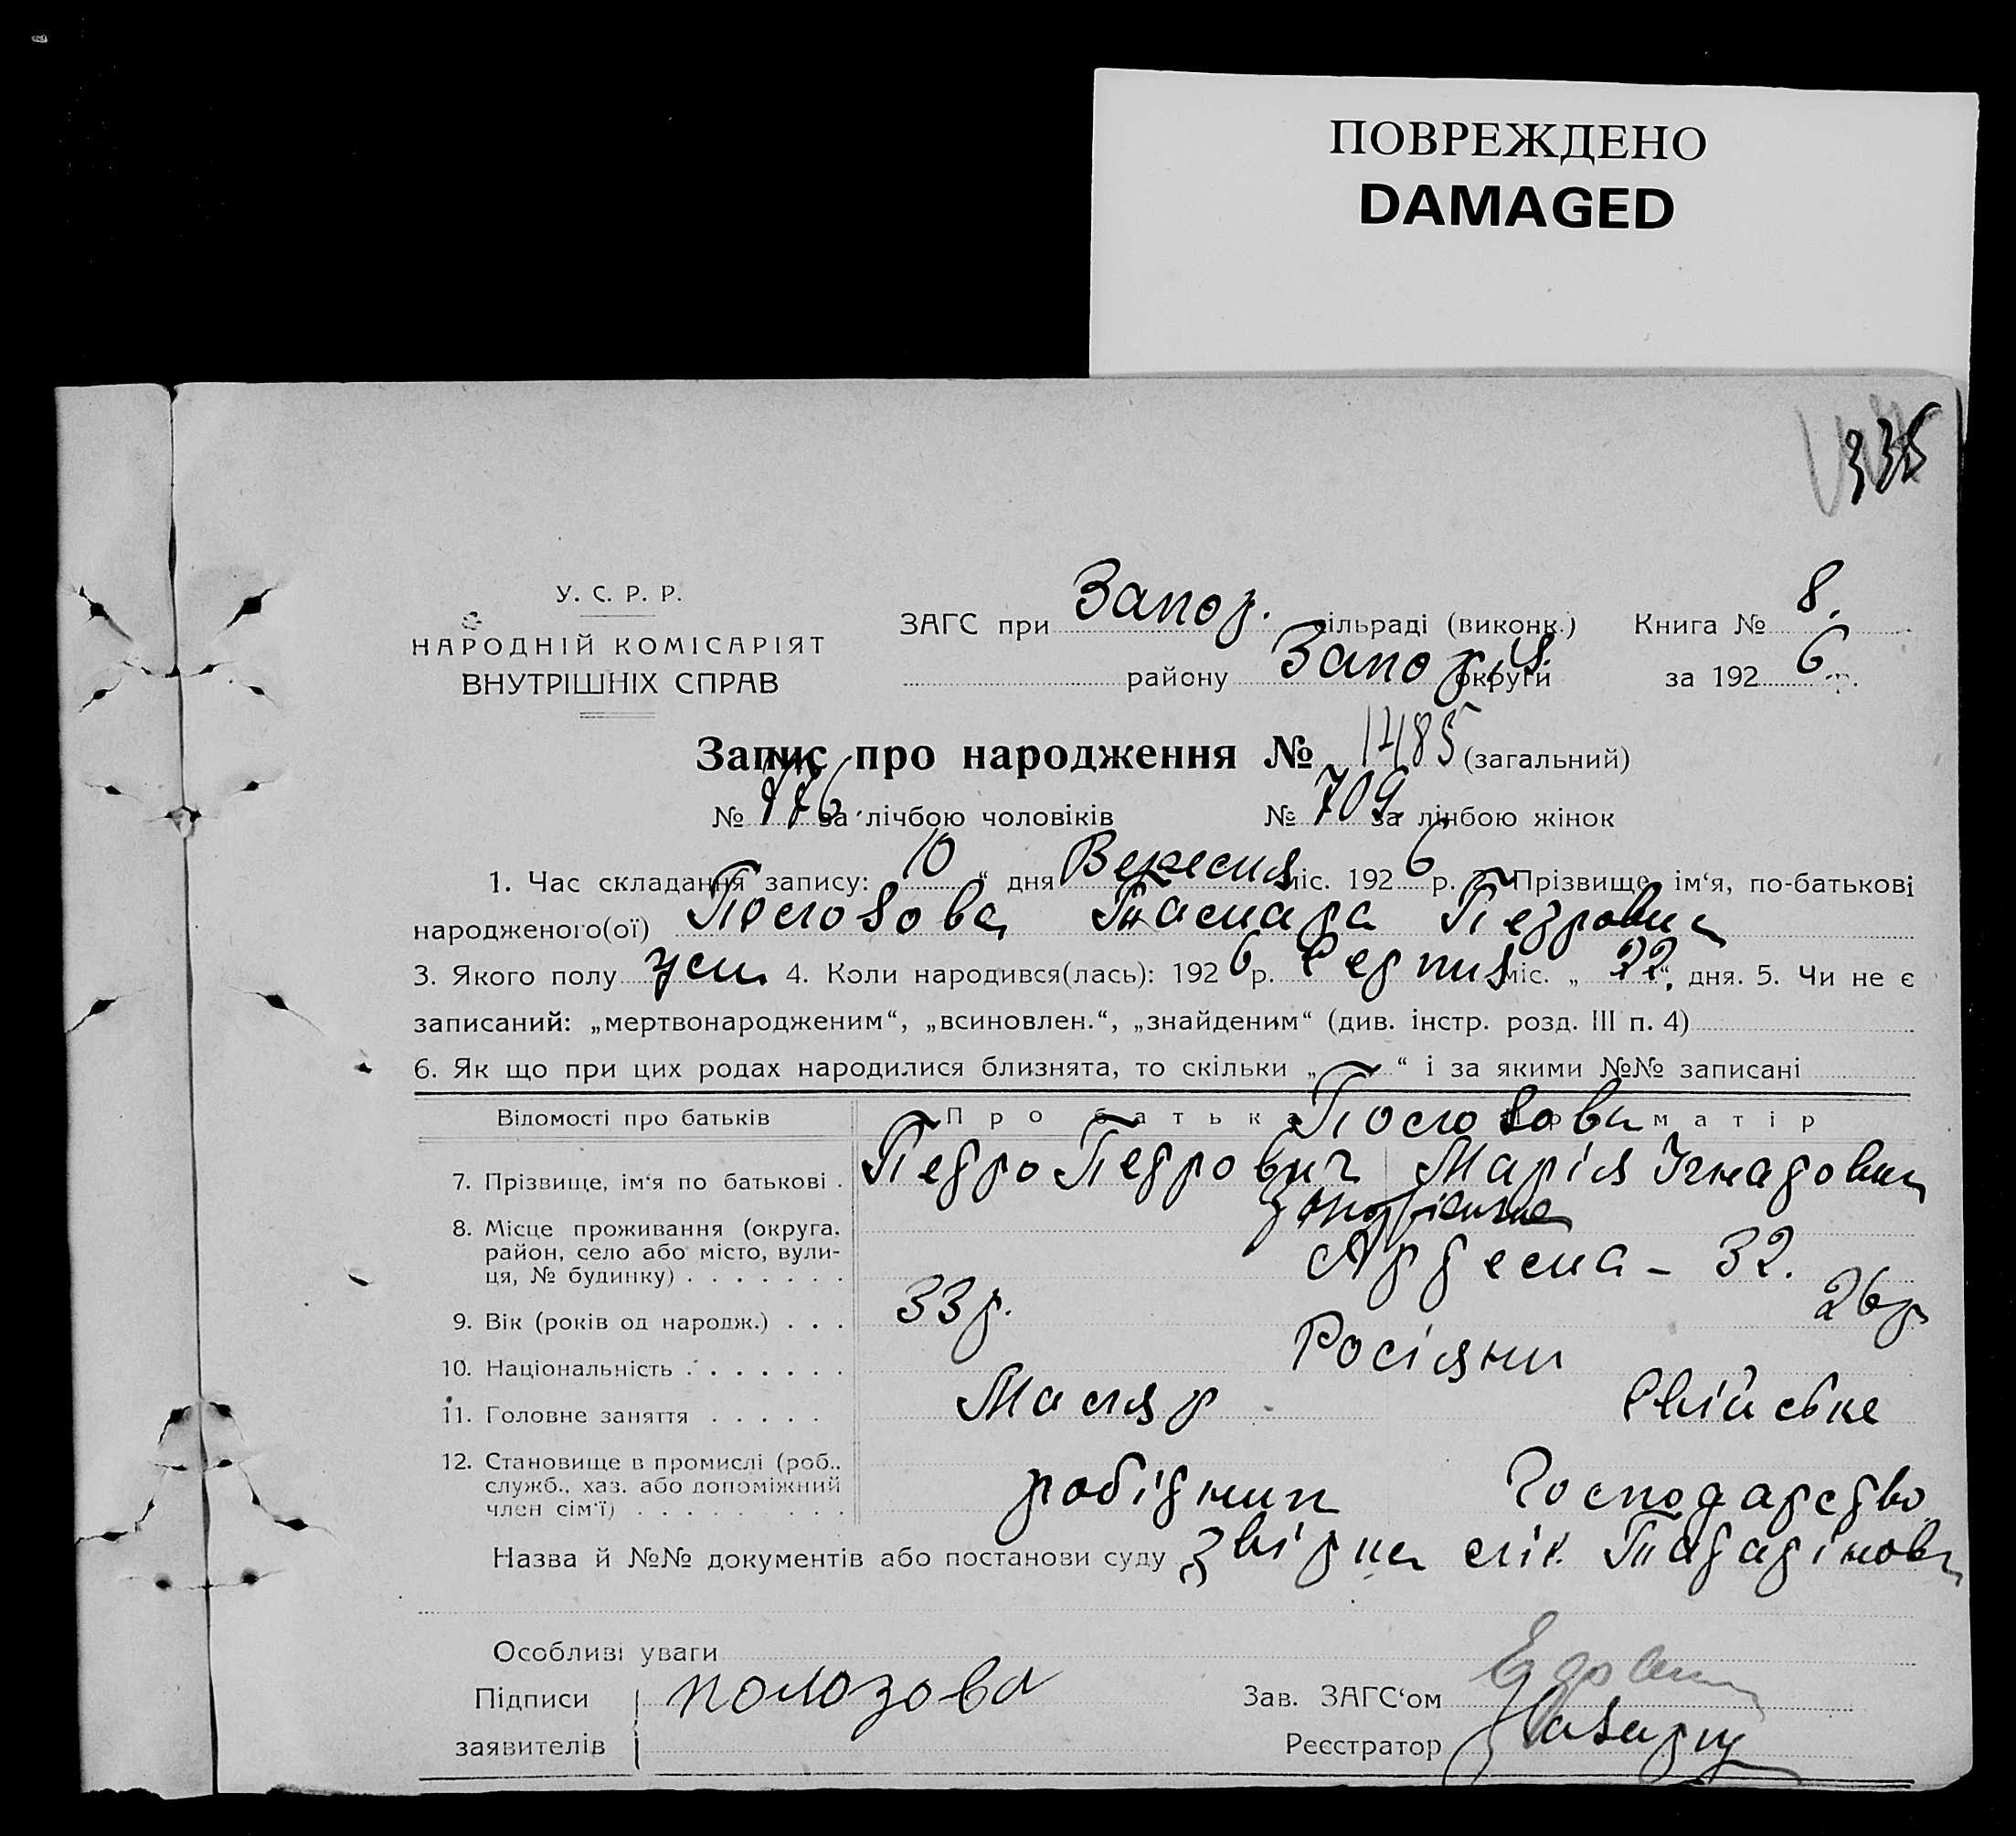 ПОВРЕЖДЕНО
DAMAGED
335
У. С. Р. Р.
НАРОДНІЙ КОМІСАРІЯТ
ВНУТРІШНІХ СПРАВ
ЗАГС при Запор. сільраді (виконк.) Книга № 8.
району Запоріз. округи за 1926 р.
Запис про народження № 1485 (загальний)
№ 776 за лічбою чоловіків № 709 за лічбою жінок
1. Час складання запису: 10 “ дня Вересня міс. 1926 р. 2. Прізвище, ім‘я, по-батькові
народженого(ої) Полозова Тамара Петровна
3. Якого полу жен. 4. Коли народився(лась): 1926 р. Серпня міс. „ 22 “ дня. 5. Чи не є
записаний: „мертвонародженим“, „всиновлен.“, „знайденим“ (див. інстр. розд. III п. 4)
6. Як що при цих родах народилися близнята, то скільки „ “ і за якими №№ записані
Відомості про батьків Про батька Про матір
Полозови
7. Прізвище, ім‘я по батькові . Петро Петрович Марія Ігнатовна
8. Місце проживання (округа,
район, село або місто, вули-
ця, № будинку) . . . . . . . Артемна - 32.
9. Вік (років од народж.) . . . 33 р. 26 р.
10. Національність . . . . . . . Росіяни
11. Головне заняття . . . . . Маляр Свійське
12. Становище в промислі (роб.,
служб., хаз. або допоміжний
член сім‘ї) . . . . . . . . . робітник Господарство
Назва й №№ документів або постанови суду звірка лік. Татарінова
Особливі уваги
Підписи Полозова Зав. ЗАГС‘ом
заявителів Реєстратор